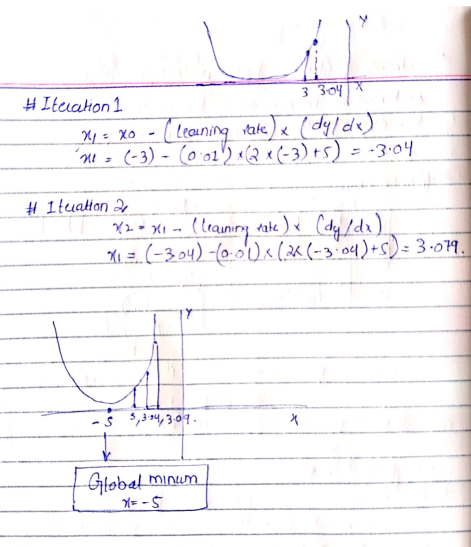 Y
3 3.04 X
# Iteration 1
x1 = x0 - (learning rate) x (dy/dx)
x1 = (-3) - (0.01) x (2 x (-3) + 5) = -3.04
# Iteration 2
x2 = x1 - (learning rate) x (dy/dx)
x1 = (-3.04) - (0.01) x (2x (-3.04) + 5) = 3.079.
Y
-5 3, 3.04, 3.09. X
Global minum
x = -5